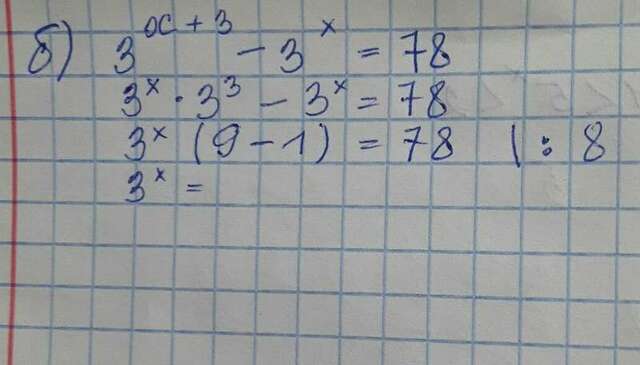 б) 3^(x + 3) - 3^x = 78
3^x · 3^3 - 3^x = 78
3^x (9 - 1) = 78 | : 8
3^x =